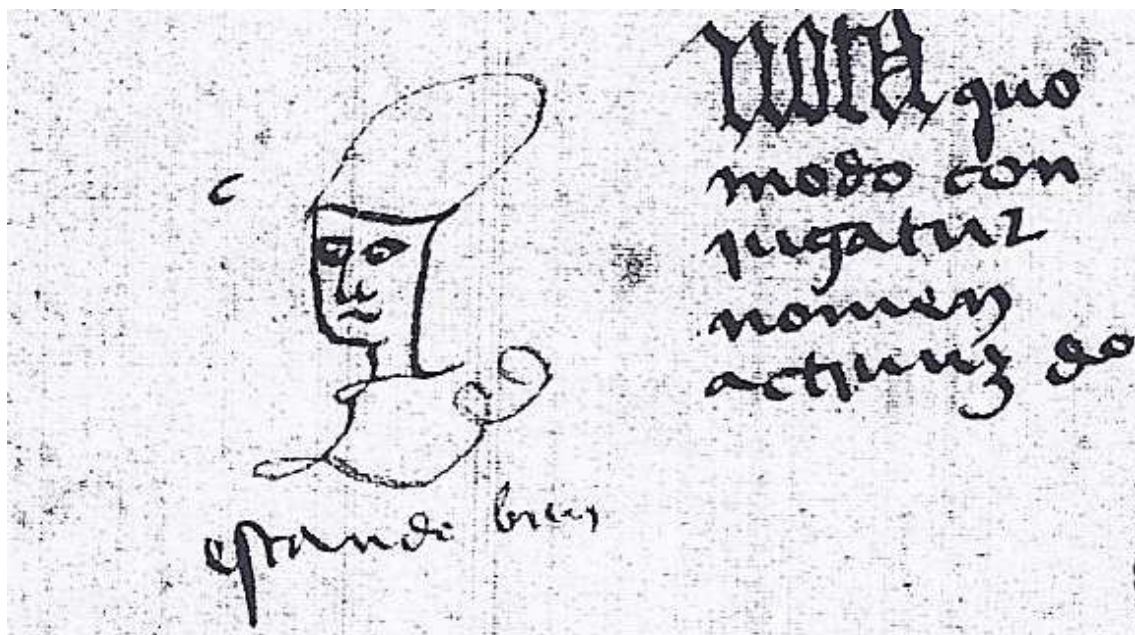 c
Nota quo
modo con
jugatur
nomen
actiuuz do
estande